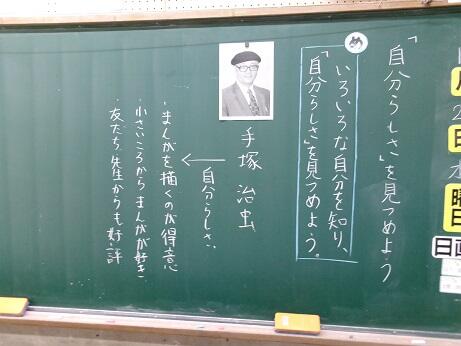 「自分らしさ」を見つめよう
め
いろいろな自分を知り、
「自分らしさ」を見つめよう。
手塚 治虫
自分らしさ
・まんがを描くのが得意
・小さいころからまんがが好き
・友だち、先生からも好評
月
日
曜日
日直